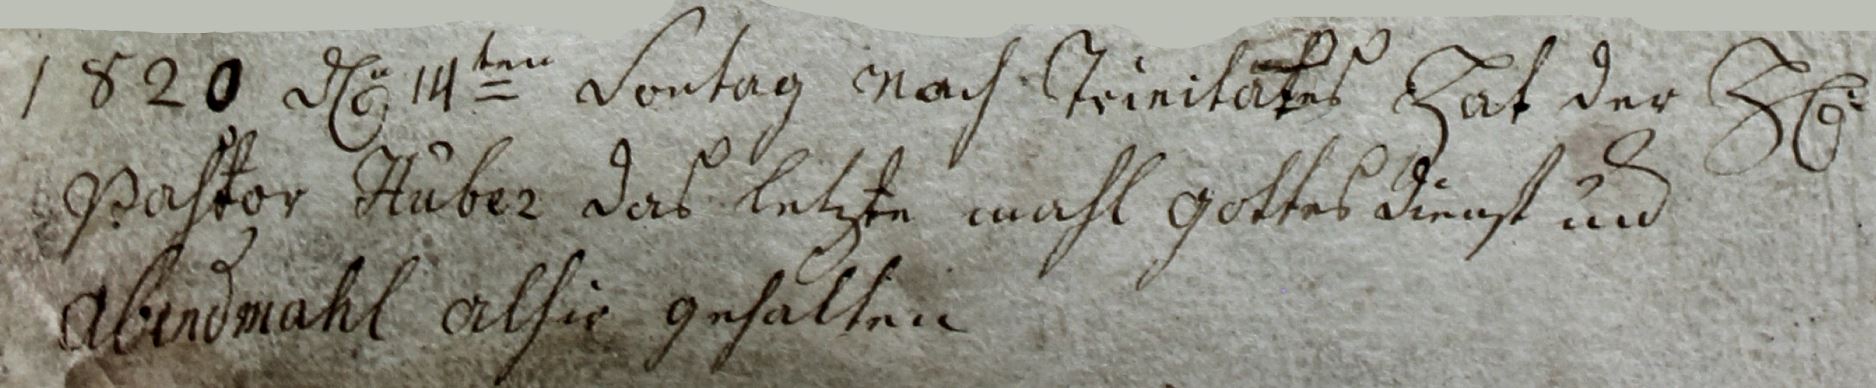 1820 den 14ten Sontag nach Trinitates Hat der H
Pastor Huber das letzte mahl gottes dienst und
abendmahl alhir gehalten